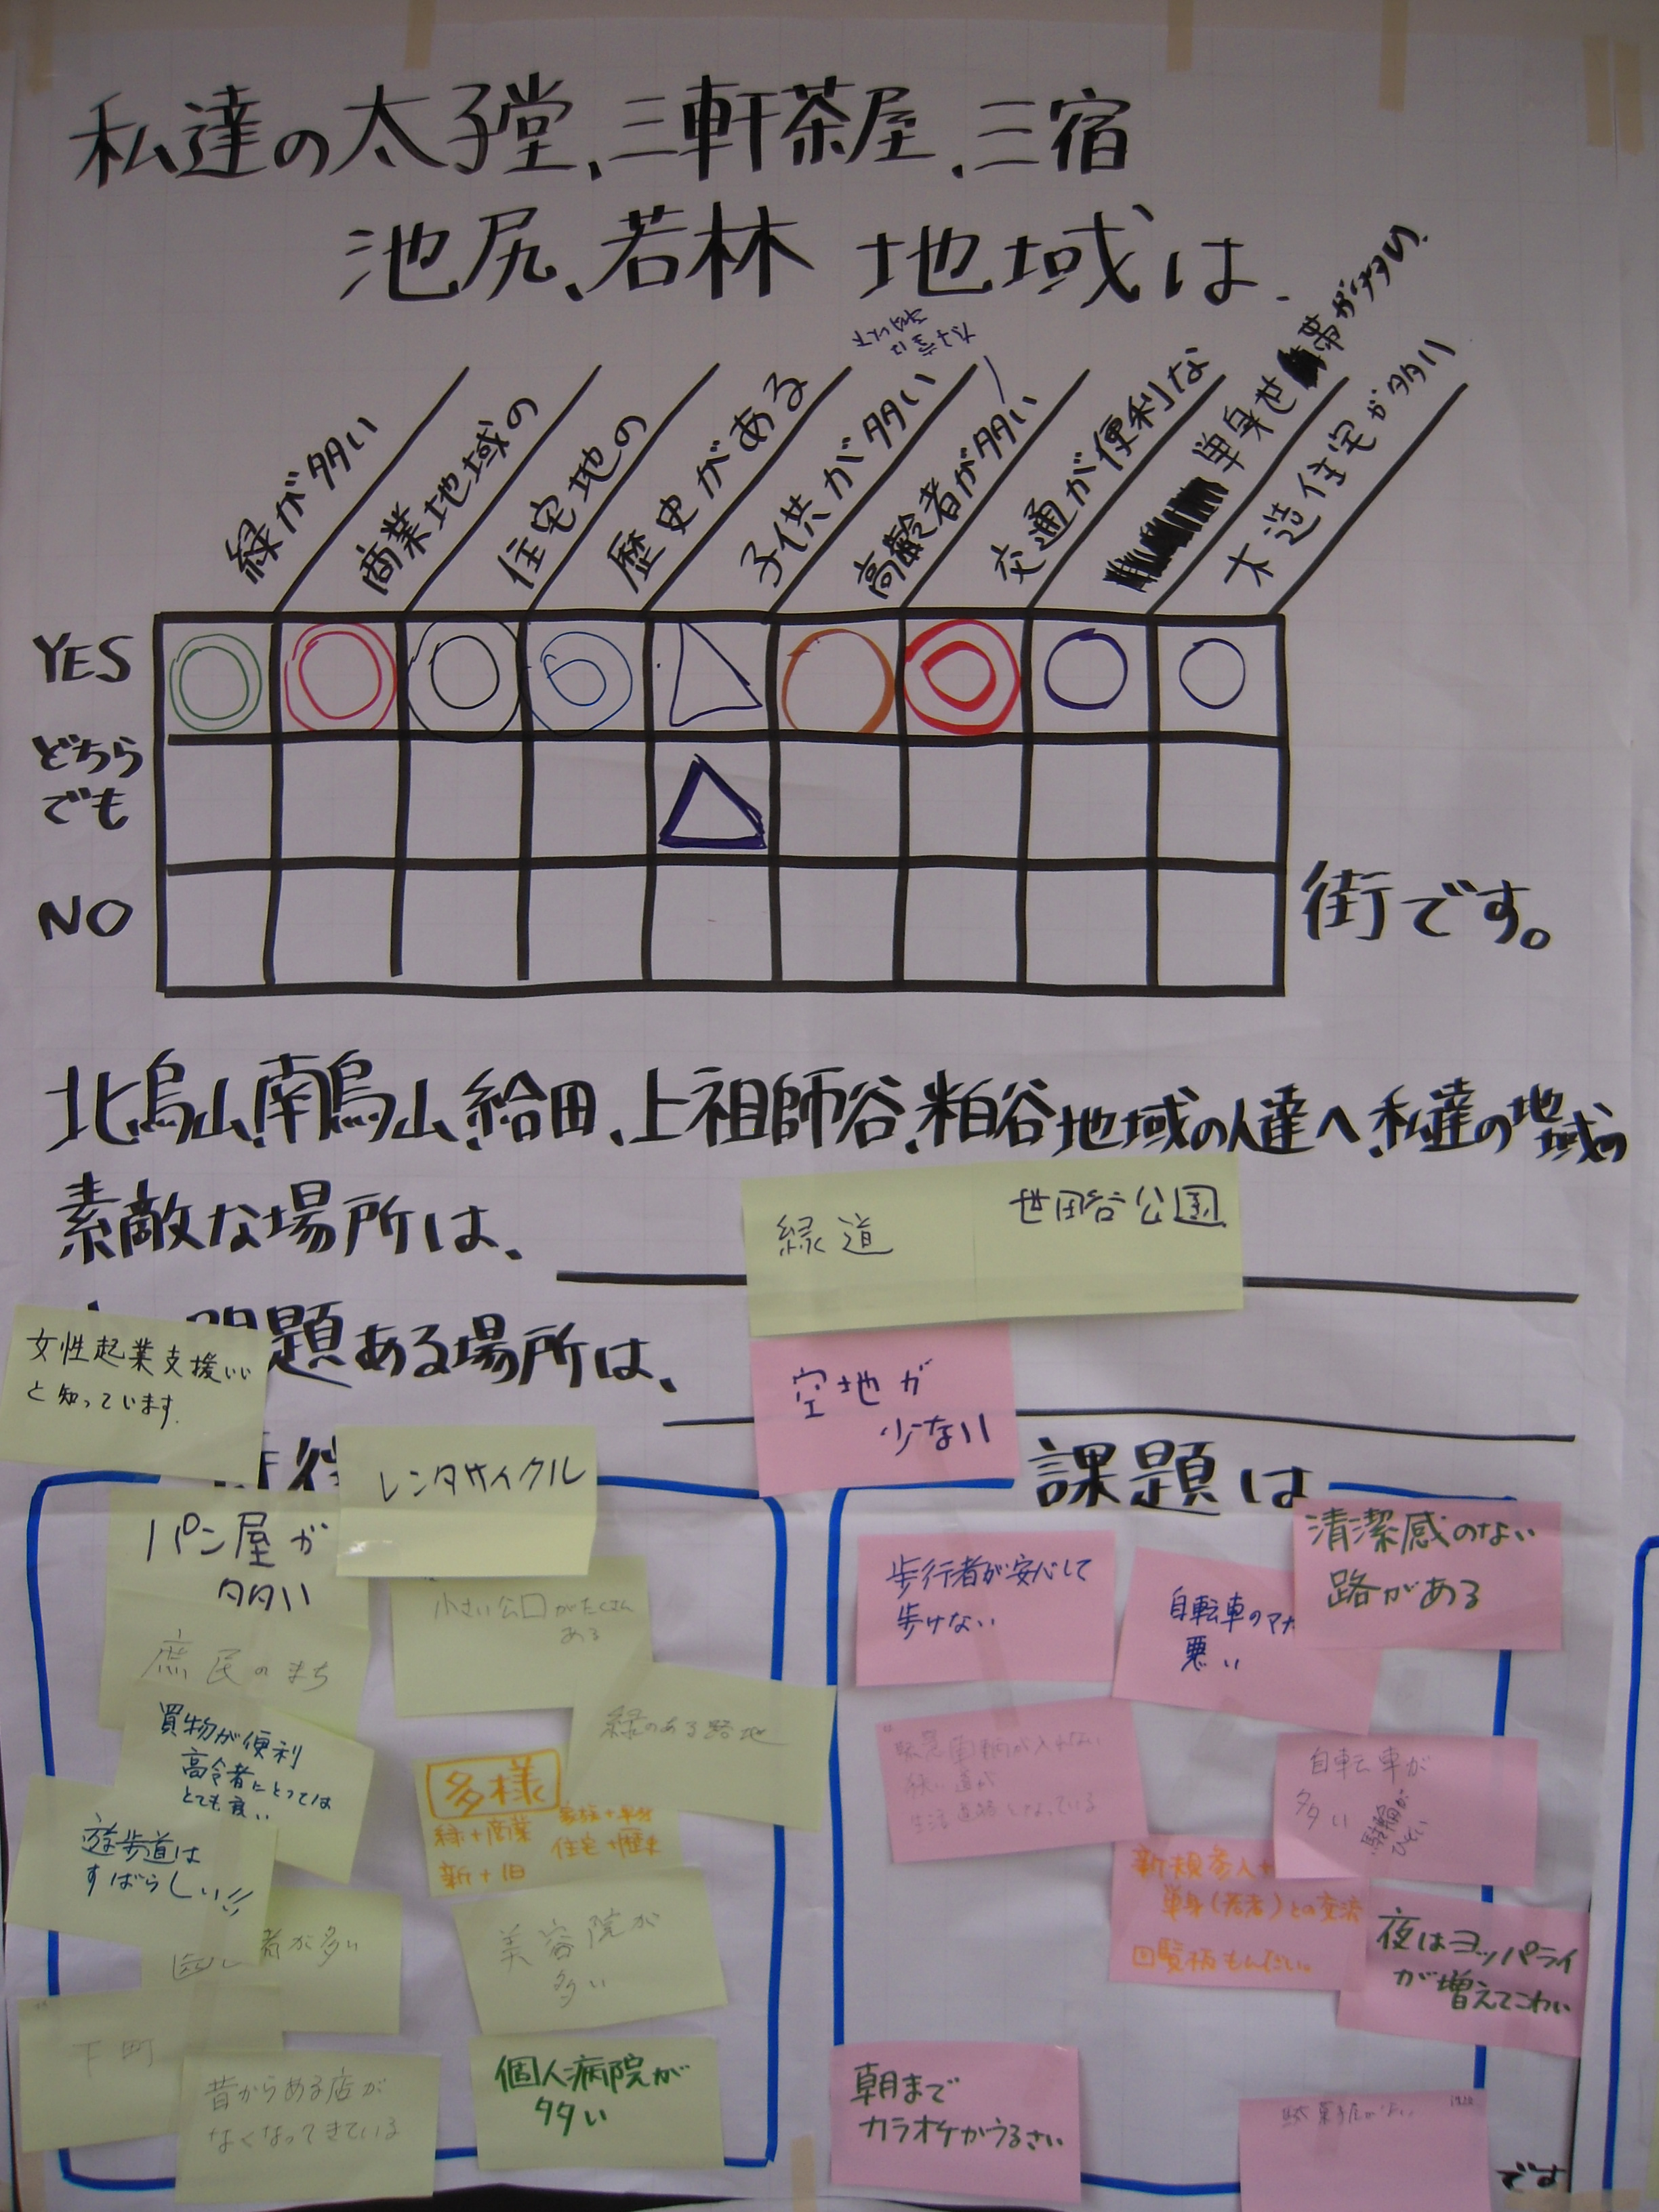 私達の太子堂、三軒茶屋、三宿
池尻、若林 地域は、
緑が多い
商業地域の
住宅地の
歴史がある
子供が多い
高齢者が多い
交通が便利な
単身世帯が多い
木造住宅が多い
YES
どちら
でも
NO
街です。
北烏山、南烏山、給田、上祖師谷、粕谷地域の人達へ、私達の地域の
素敵な場所は、
緑道
世田谷公園
題ある場所は、
空地が
少ない
女性起業支援いい
と知っています。
レンタサイクル
パン屋が
多い
小さい公口がたくさん
ある
庶民のまち
緑のある路地
買物が便利
高令者にとっては
とても良い
多様
緑+商業
新+旧
家族+単身
住宅+歴史
遊歩道は
すばらしい!!
者が多い
美容院が
多い
下町
昔からある店が
なくなってきている
個人病院が
多い
課題は
歩行者が安心して
歩けない
自転車のマナ
悪い
清潔感のない
路がある
緊急車輌が入れない
狭い道が
生活道路となっている
自転車が
多い
駐輪が
ひどい
新規参入+
単身(若者)との交流
回覧板もんだい。
夜はヨッパライ
が増えてこわい
朝まで
カラオケがうるさい
です